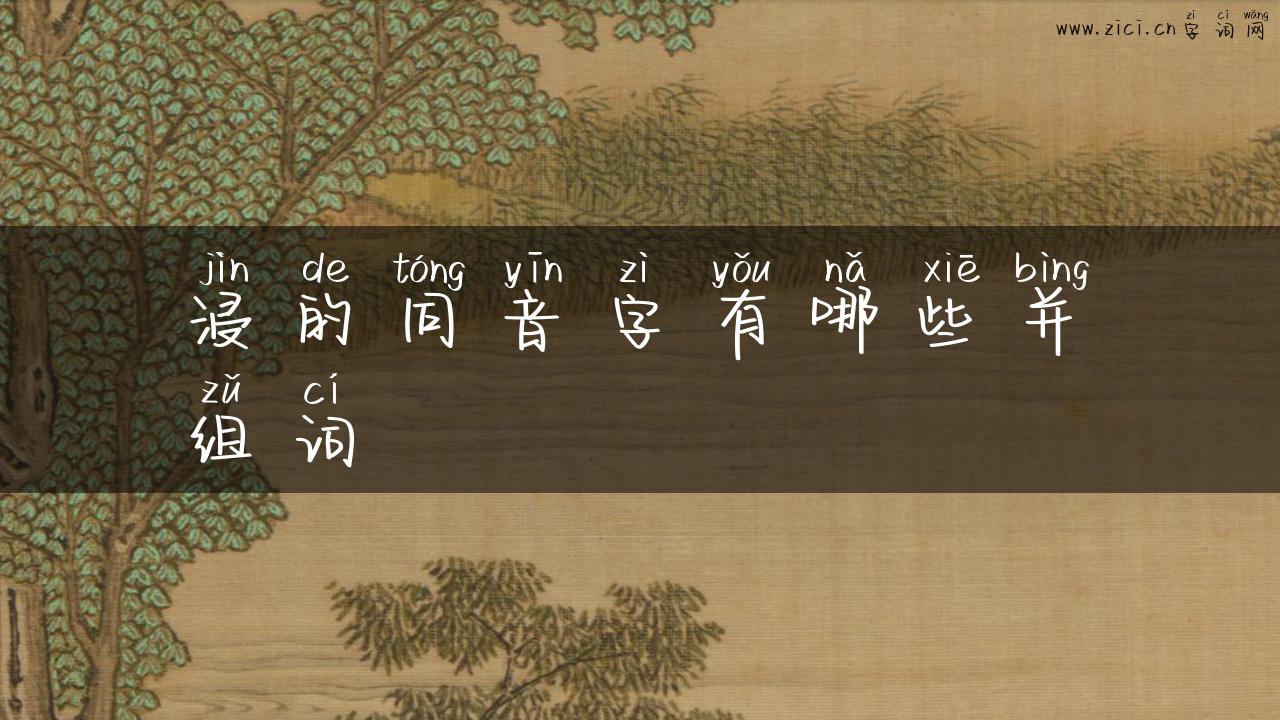 zì cí wǎng
www.zici.cn字词网
jìn de tóng yīn zì yǒu nǎ xiē bìng
浸的同音字有哪些并
zǔ cí
组词